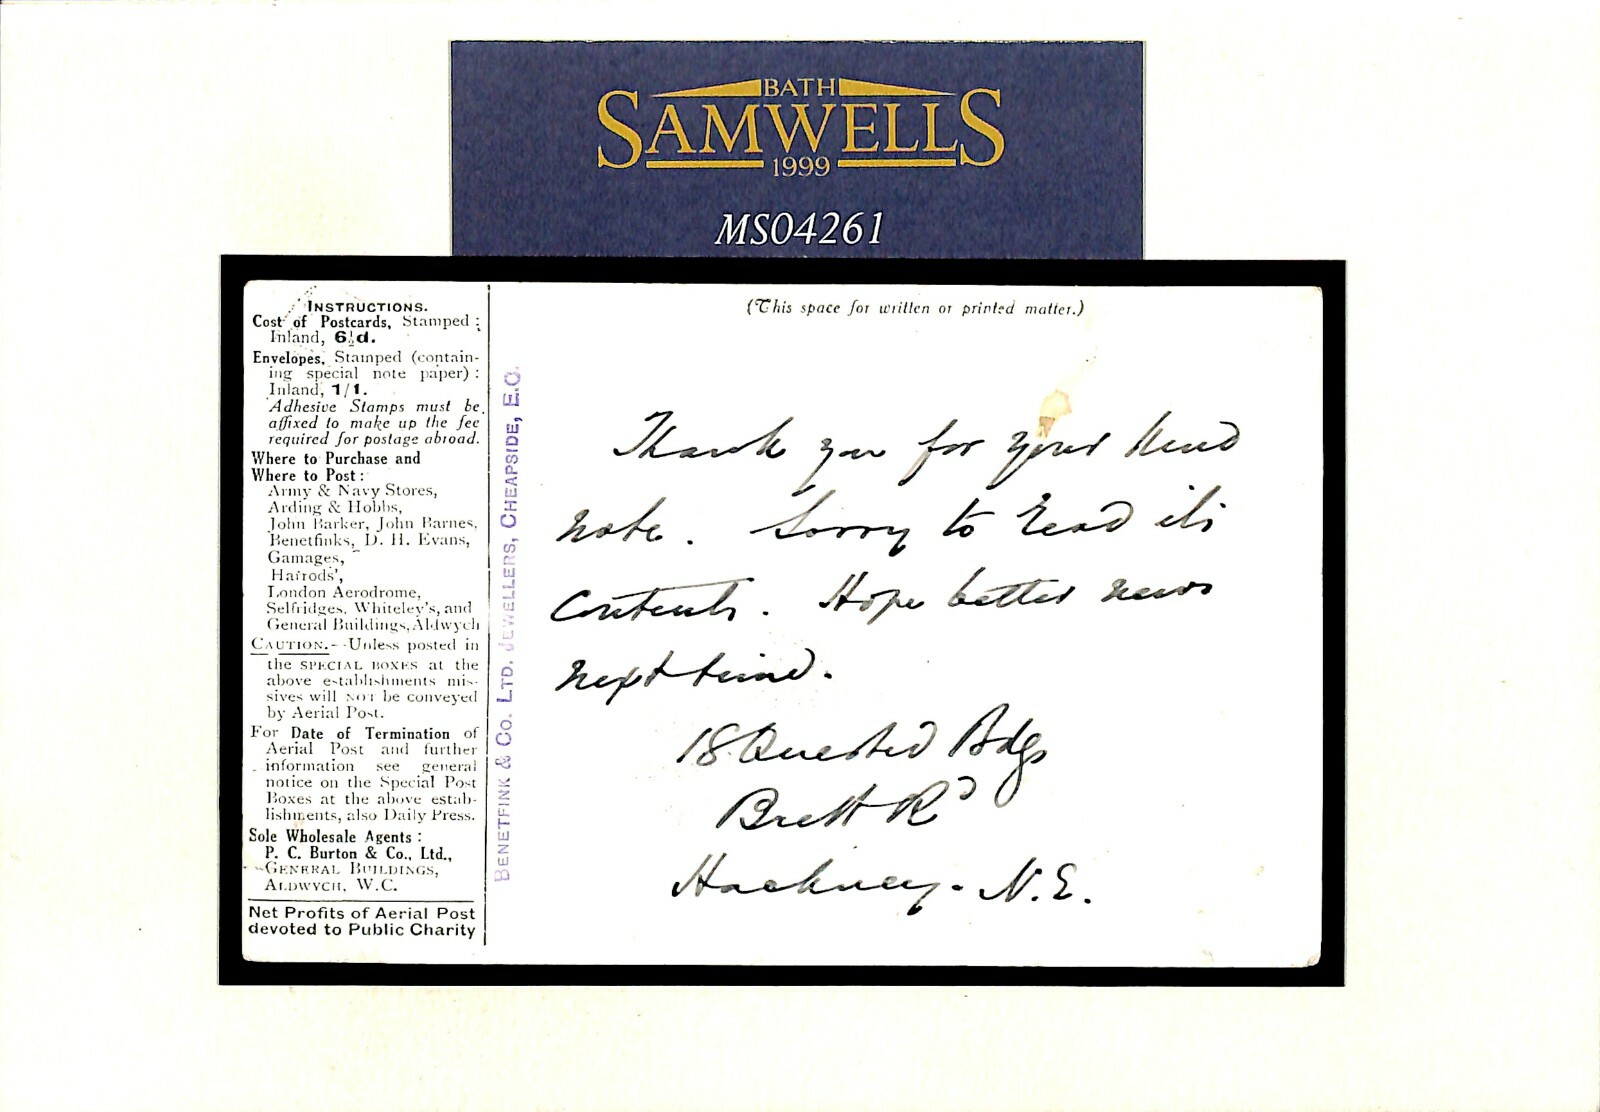 BATH
SAMWELLS
1999
MS04261
INSTRUCTIONS.
Cost of Postcards, Stamped:
Inland, 6½d.
Envelopes, Stamped (contain-
ing special note paper):
Inland, 1/1.
Adhesive Stamps must be
affixed to make up the fee
required for postage abroad.
Where to Purchase and
Where to Post:
Army & Navy Stores,
Arding & Hobbs,
John Barker, John Barnes,
Benetfinks, D. H. Evans,
Gamages,
Harrods',
London Aerodrome,
Selfridges, Whiteley's, and
General Buildings, Aldwych
CAUTION.—Unless posted in
the SPECIAL BOXES at the
above establishments mis-
sives will NOT be conveyed
by Aerial Post.
For Date of Termination of
Aerial Post and further
information see general
notice on the Special Post
Boxes at the above estab-
lishments, also Daily Press.
Sole Wholesale Agents:
P. C. Burton & Co., Ltd.,
GENERAL BUILDINGS,
ALDWYCH, W.C.
Net Profits of Aerial Post
devoted to Public Charity
BENETFINK & CO. LTD. JEWELLERS, CHEAPSIDE, E.C.
(This space for written or printed matter.)
Thank you for your kind
note. Sorry to read its
contents. Hope better news
next time.
18 Quested Bdgs
Brett Rd
Hackney. N.E.